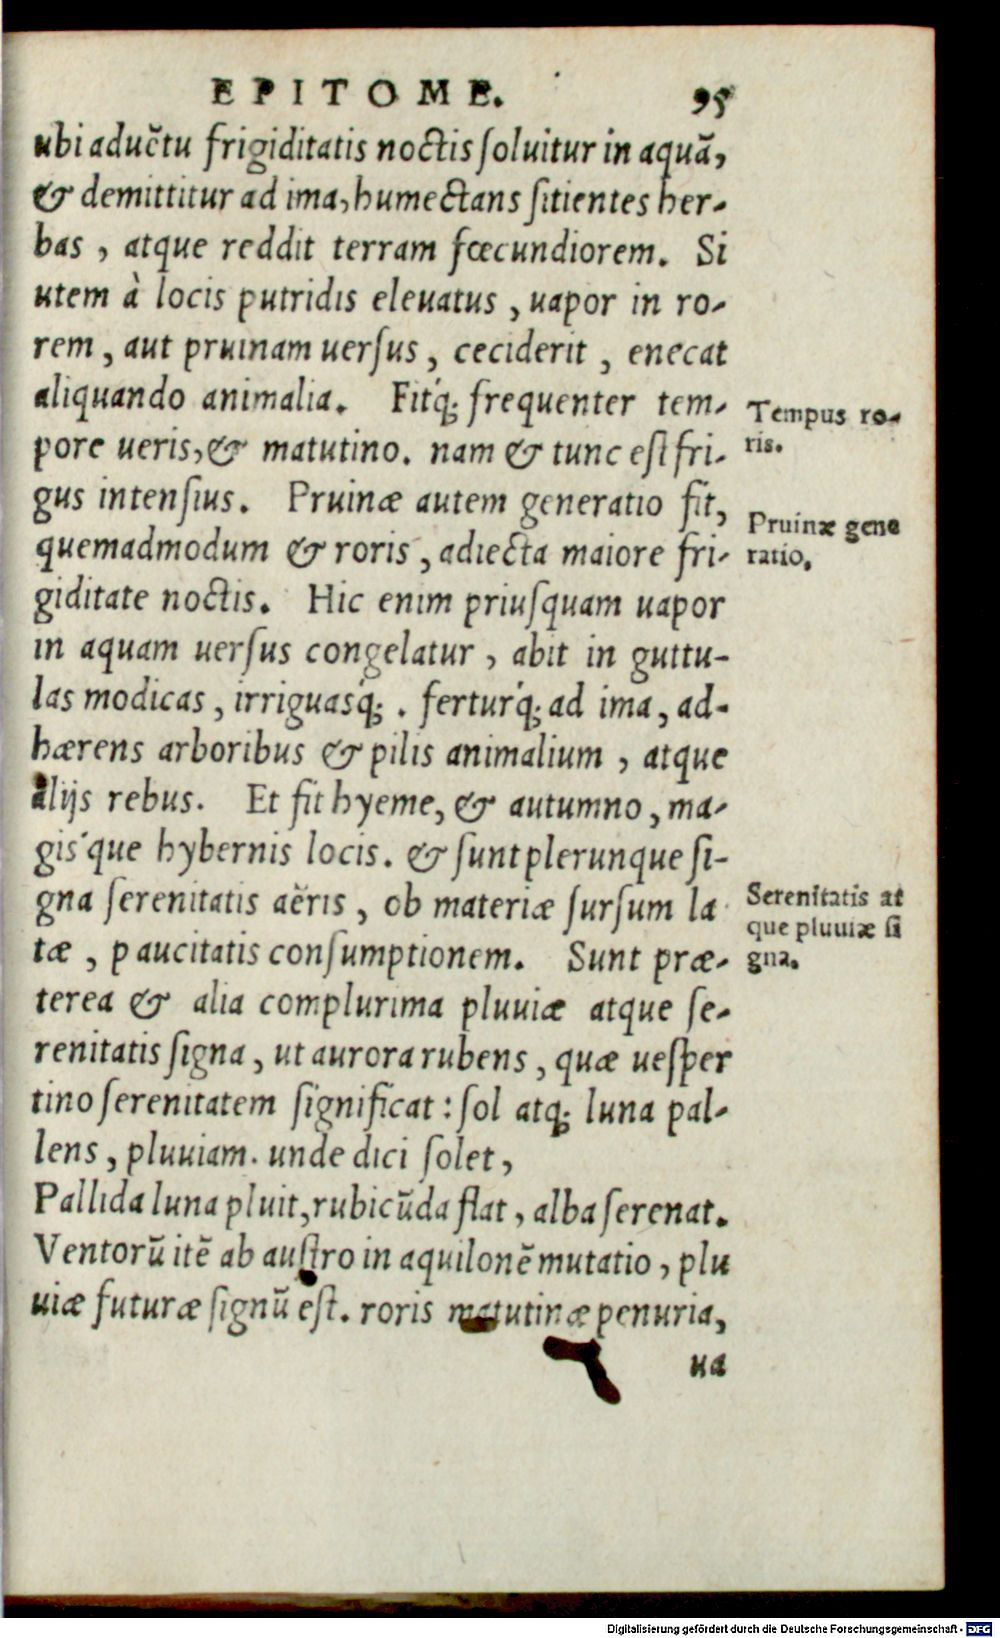 EPITOME. 95
ubi aduẽtu frigiditatis noctis ſoluitur in aquã,
& demittitur ad ima, humectans ſitientes her-
bas, atque reddit terram fœcundiorem. Si
utem à locis putridis eleuatus, uapor in ro-
rem, aut pruinam uerſus, ceciderit, enecat
aliquando animalia. Fitq́; frequenter tem-
pore ueris, & matutino. nam & tunc eſt fri-
gus intenſius. Pruinæ autem generatio fit,
quemadmodum & roris, adiecta maiore fri-
giditate noctis. Hic enim priuſquam uapor
in aquam uerſus congelatur, abit in guttu-
las modicas, irriguasq́;. ferturq́; ad ima, ad-
hærens arboribus & pilis animalium, atque
alijs rebus. Et fit hyeme, & autumno, ma-
gis'que hybernis locis. & ſunt plerunque ſi-
gna ſerenitatis aëris, ob materiæ ſurſum la
tæ, p aucitatis conſumptionem. Sunt præ-
terea & alia complurima pluuiæ atque ſe-
renitatis ſigna, ut aurora rubens, quæ ueſper
tino ſerenitatem ſignificat: ſol atq; luna pal-
lens, pluuiam. unde dici ſolet,
Pallida luna pluit, rubicũda flat, alba ſerenat.
Ventorũ itẽ ab auſtro in aquilonẽ mutatio, plu
uiæ futuræ ſignũ eſt. roris matutinæ penuria,
ua
Tempus ro-
ris.
Pruinæ gene
ratio.
Serenitatis at
que pluuiæ ſi
gna.
Digitalisierung gefördert durch die Deutsche Forschungsgemeinschaft - DFG